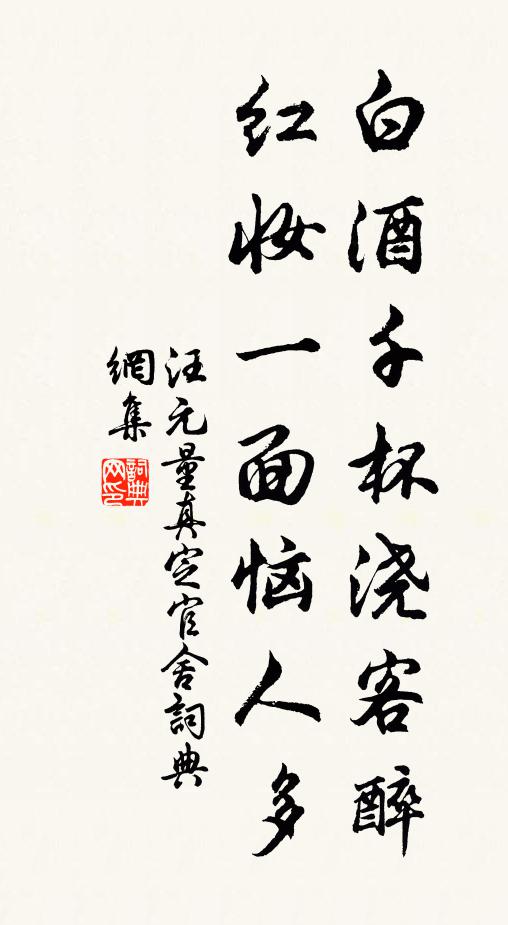 白酒千杯浇客醉
红妆一面恼人多
汪元量真定官舍詞典
網集
詞典
网印